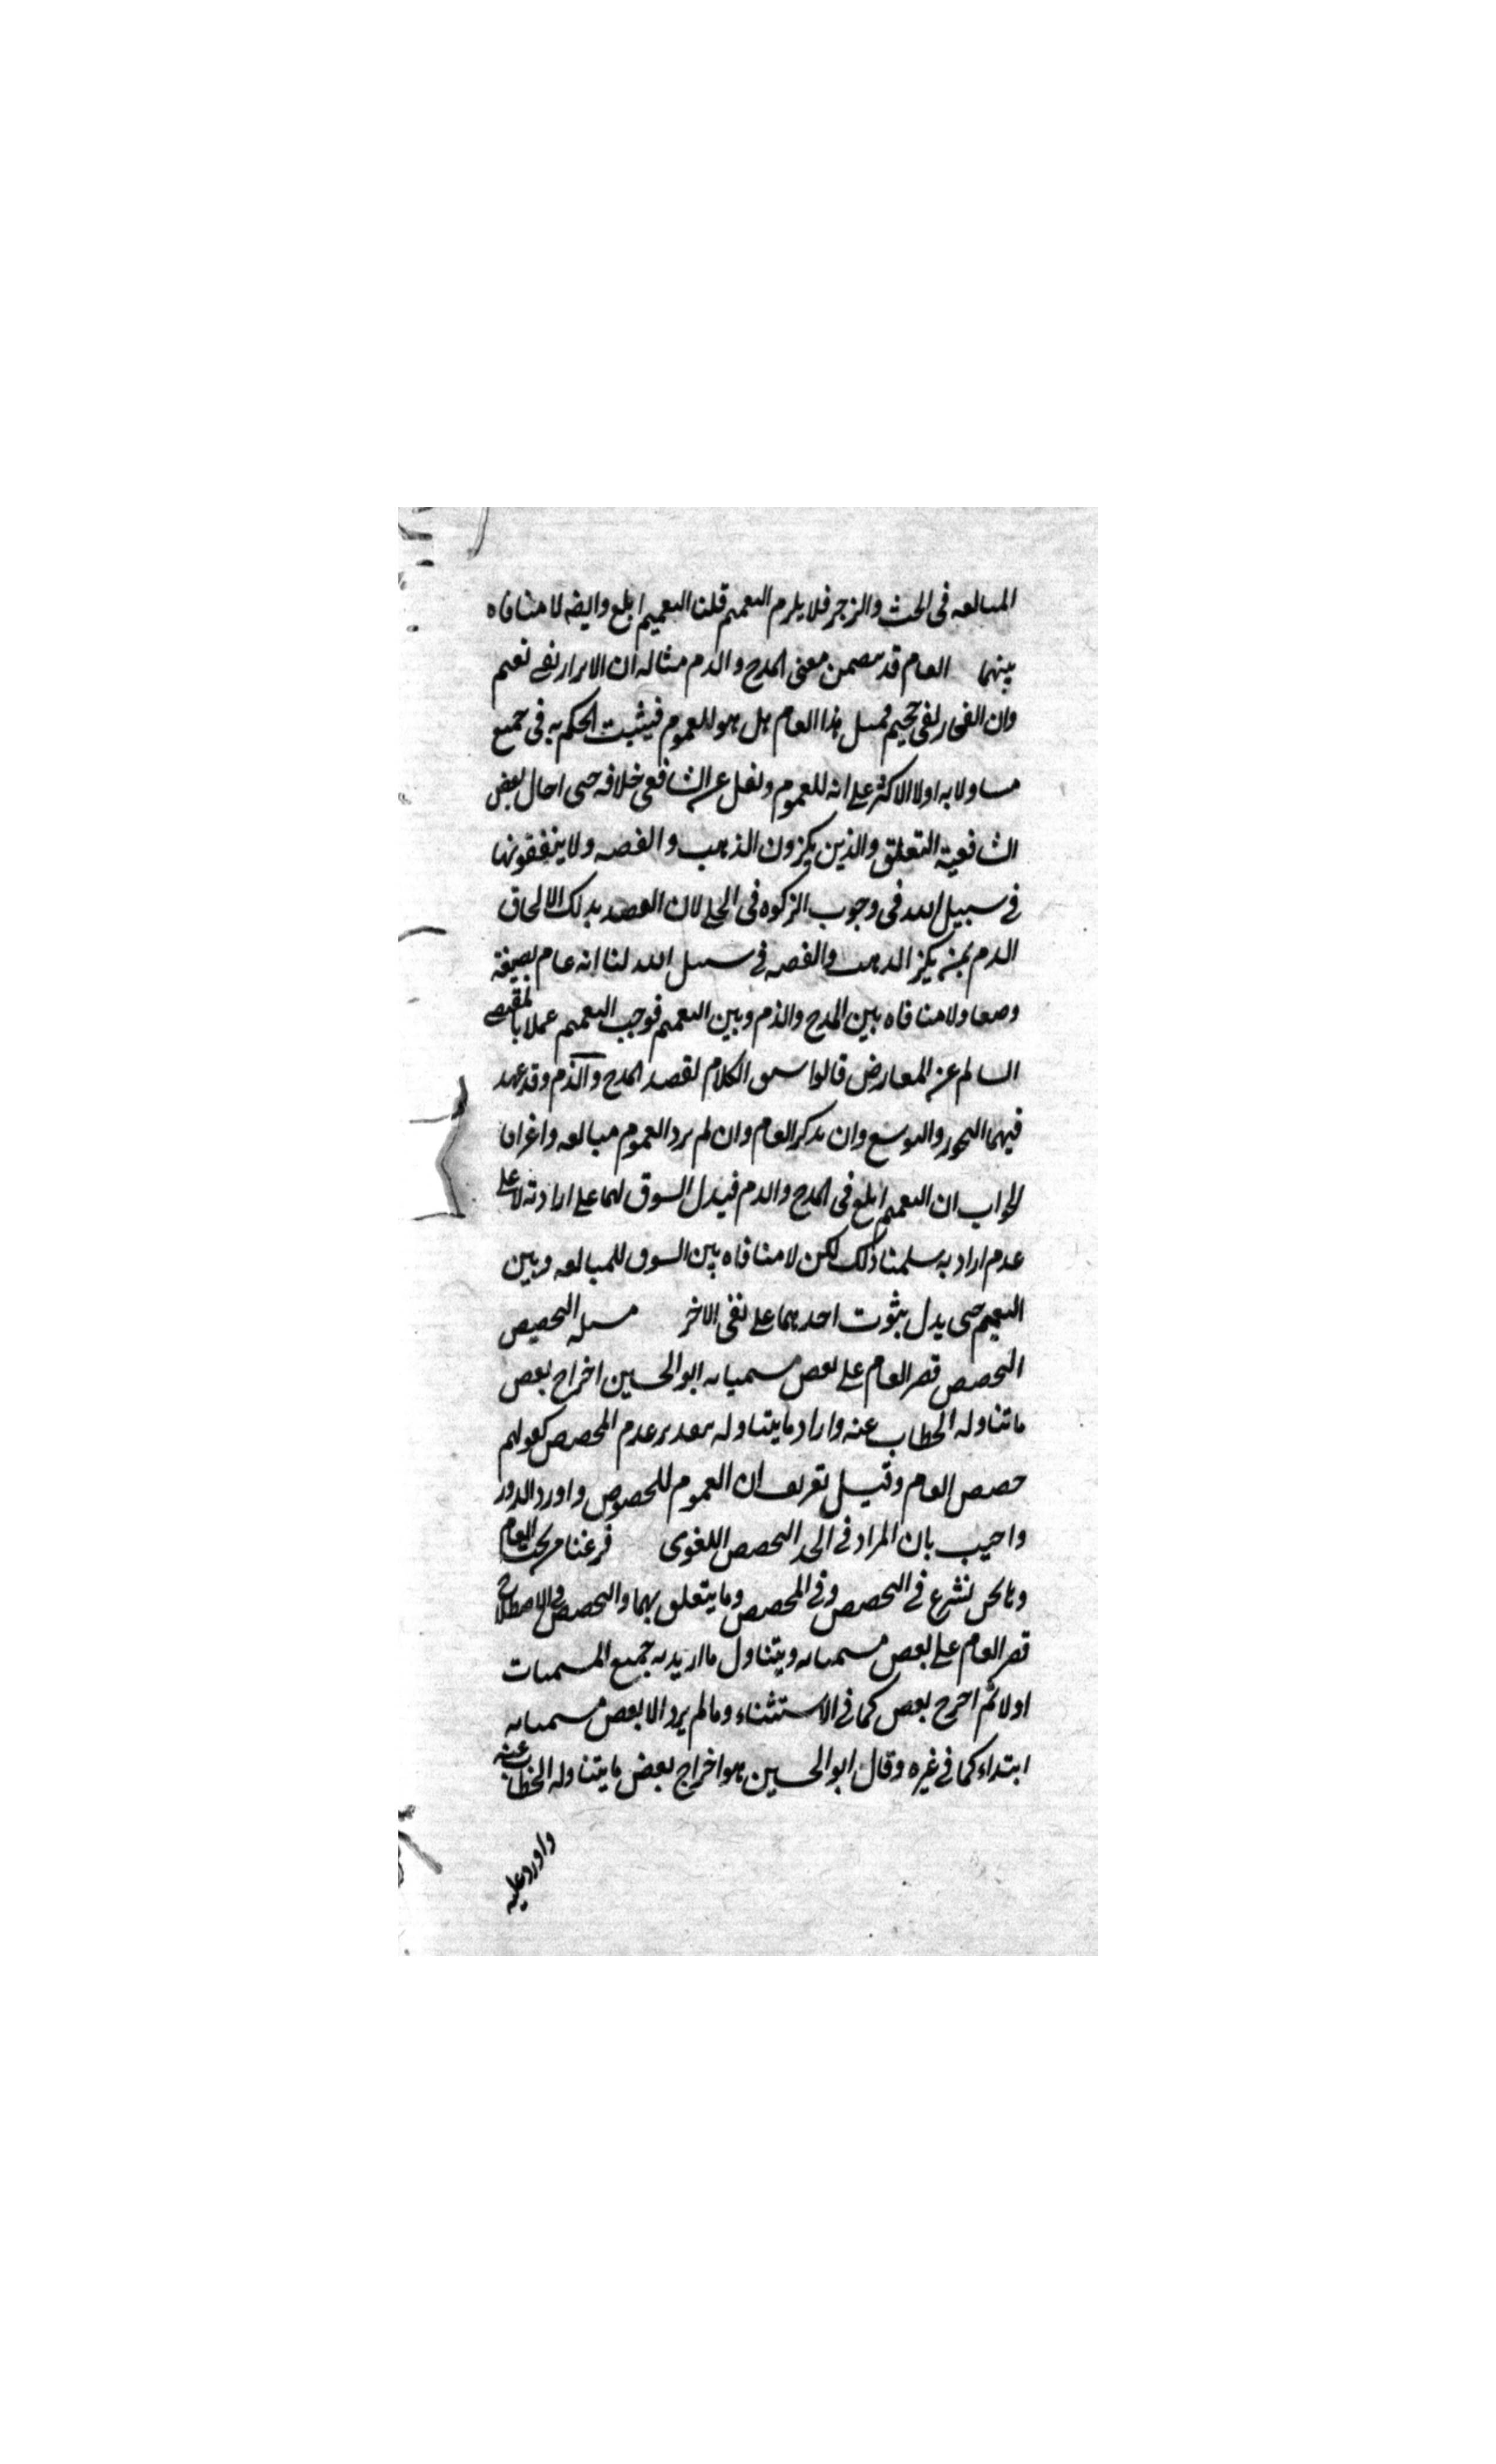 المبالغه فى الحث والزجر فلا يلزم التعميم قلنا التعميم ابلغ وايضه لا منافاه
بينهما العام قد يتضمن معنى المدح والذم مثاله ان الابرار لفى نعيم
وان الفجار لفى جحيم فمثل هذا العام هل هو للعموم فيثبت الحكم به فى جميع
متناولاته اولا الاكثر على انه للعموم ونقل عن الشافعى خلافه حتى احال بعض
الشافعية التعلق والذين يكنزون الذهب والفضه ولا ينفقونها
فى سبيل الله فى وجوب الزكوة فى الحلى لان القصد بذلك الالحاق
الذم بمن يكنز الذهب والفضه فى سبيل الله لنا انه عام بصيغة
وضعا ولا منافاه بين المدح والذم وبين التعميم فوجب التعميم عملا بالمقتضى
السالم عن المعارض قالوا سيق الكلام لقصد المدح والذم وقد عهد
فيهما التجوز والتوسع وان يذكر العام وان لم يرد العموم مبالغه واغراقا
الجواب ان التعميم ابلغ فى المدح والذم فيدل السوق لهما على ارادته لا على
عدم ارادته سلمنا ذلك لكن لا منافاه بين السوق للمبالغه وبين
التعميم حتى يدل بثبوت احدهما على نفى الاخر مسئله التخصيص
التخصيص قصر العام على بعض مسمياته ابو الحسين اخراج بعض
ما تناوله الخطاب عنه واراد ما يتناوله بتقدير عدم المخصص كقولهم
خصص العام وقيل تعريف ان العموم للخصوص واورد الدور
واجيب بان المراد فى الحد التخصيص اللغوى فرغنا من بحث العام
وها نحن نشرع فى التخصيص وفى المخصص وما يتعلق بهما والتخصيص فى الاصطلاح
قصر العام على بعض مسمياته ويتناول ما اريد به جميع المسميات
اولا ثم اخرج بعض كما فى الاستثناء وما لم يرد الا بعض مسمياته
ابتداء كما فى غيره وقال ابو الحسين هو اخراج بعض ما يتناوله الخطاب عنه
واورد عليه